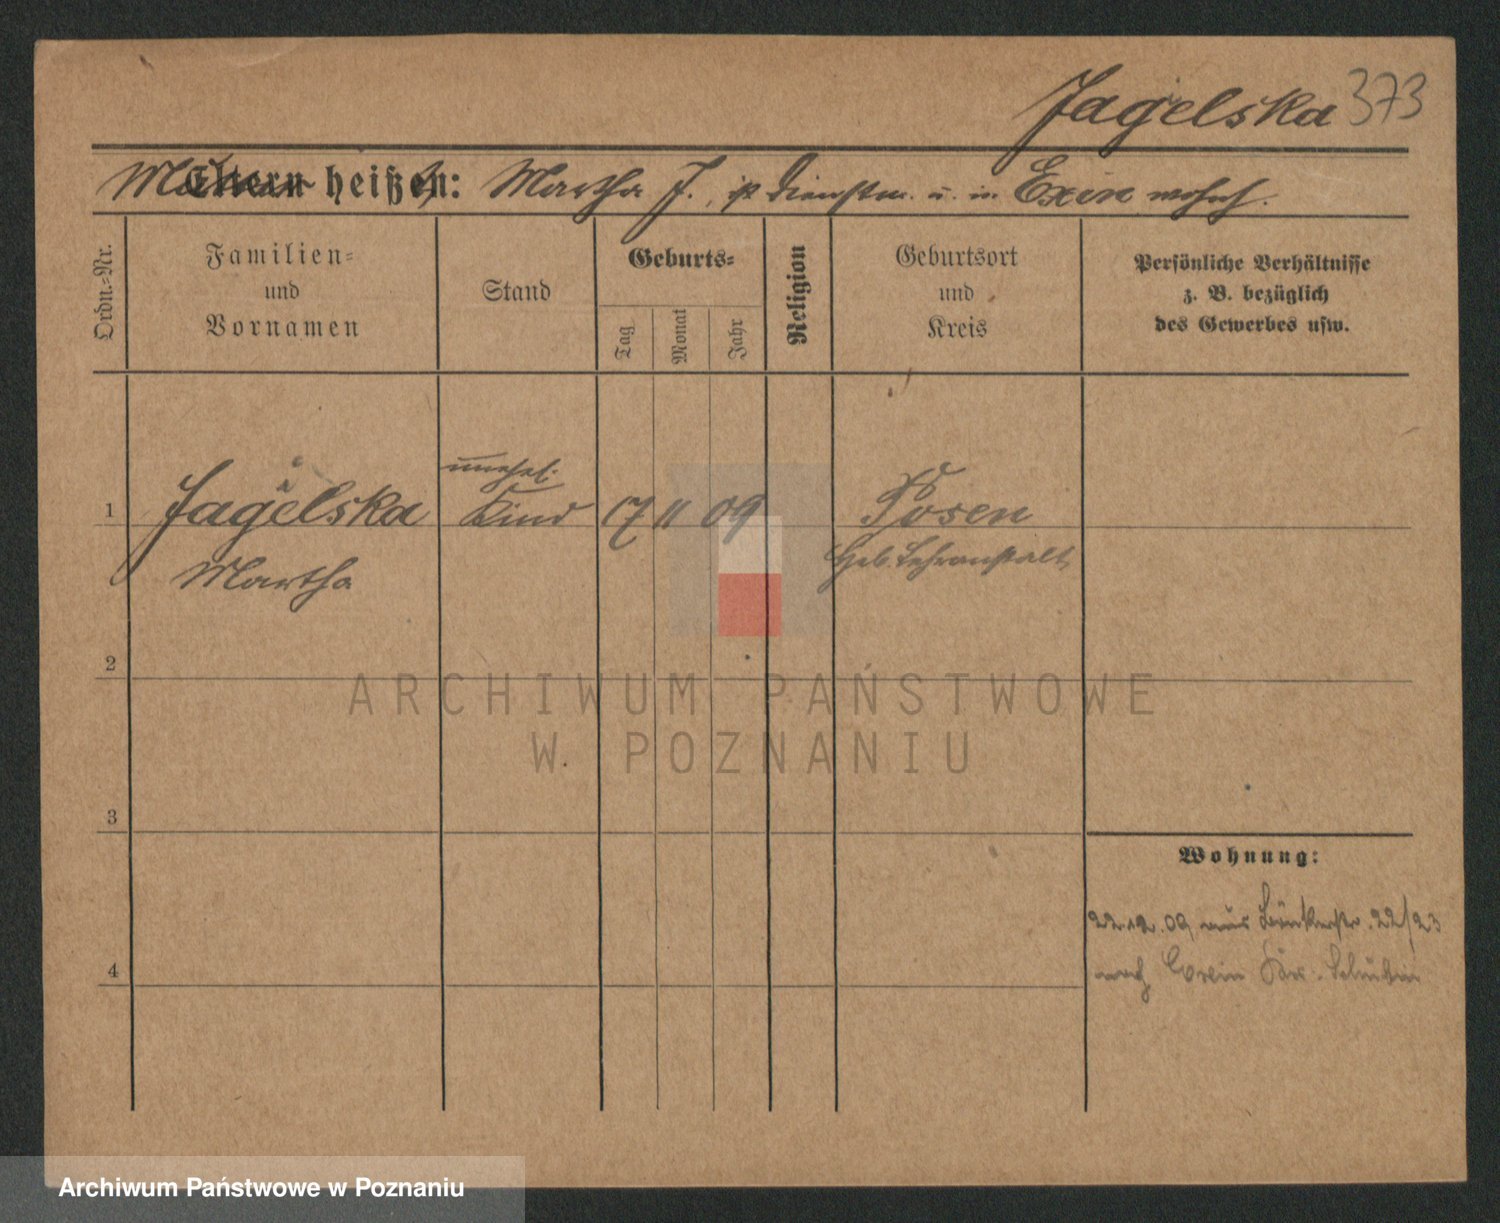 Jagelska 373
Mutter heißt: Martha J., ist Dienstm. u. in Exin wohnh.
Ordn.=Nr.
Familien=
und
Vornamen
Stand
Geburts=
Tag
Monat
Jahr
Religion
Geburtsort
und
Kreis
Persönliche Verhältnisse
z. B. bezüglich
des Gewerbes usw.
unehel.
1 Jagelska Kind 17 11 09 Posen
Martha Heb. Lehranstalt
2
ARCHIWUM PAŃSTWOWE
W POZNANIU
3
Wohnung:
22.12.09 aus 22/23
4
nach Exin Kr. Schubin
Archiwum Państwowe w Poznaniu